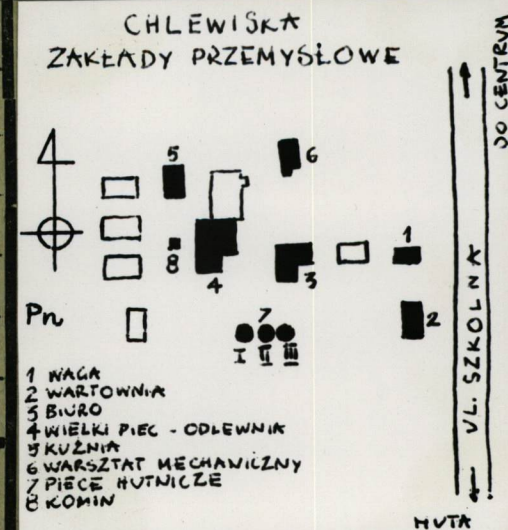 CHLEWISKA
ZAKŁADY PRZEMYSŁOWE
DO CENTRUM
5
6
1
8
4
3
2
7
I II III
Pn
UL. SZKOLNA
1 WAGA
2 WARTOWNIA
3 BIURO
4 WIELKI PIEC - ODLEWNIA
5 KUŹNIA
6 WARSZTAT MECHANICZNY
7 PIECE HUTNICZE
8 KOMIN
HUTA